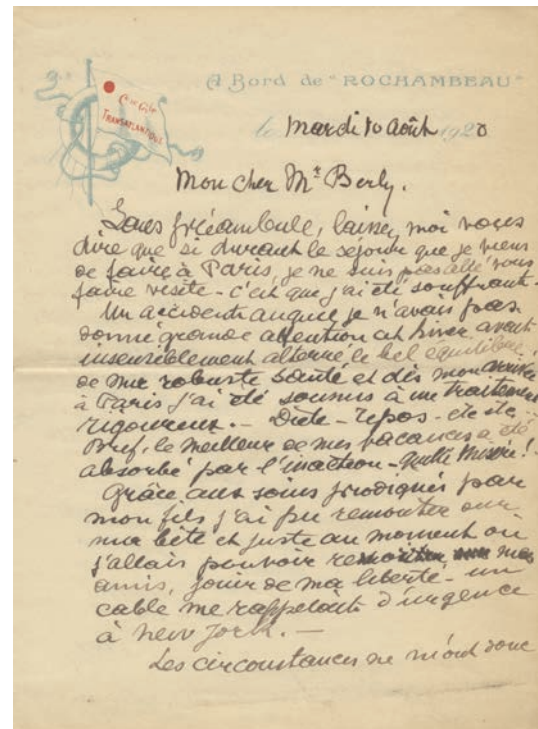 Cie Gle
TRANSATLANTIQUE
A Bord de "ROCHAMBEAU"
le mardi 10 août 1920
Mon cher Mr Berly.
Sans préambule, laissez moi vous
dire que si durant le séjour que je viens
de faire à Paris, je ne suis pas allé vous
faire visite - c'est que j'ai été souffrant -
Un accident auquel je n'avais pas
donné grande attention cet hiver avait
insensiblement alterné le bel équilibre
de ma robuste santé et dès mon arrivée
à Paris j'ai été soumis à un traitement
rigoureux. - Diète - repos - etc etc
Bref, le meilleur de mes vacances a été
absorbé par l'inaction - quelle misère!
Grâce aux soins prodigués par
mon fils j'ai pu remonter sur
ma bête et juste au moment où
j'allais pouvoir mes
amis, jouir de ma liberté - un
cable me rappelait d'urgence
à New York. -
Les circonstances ne m'ont donc